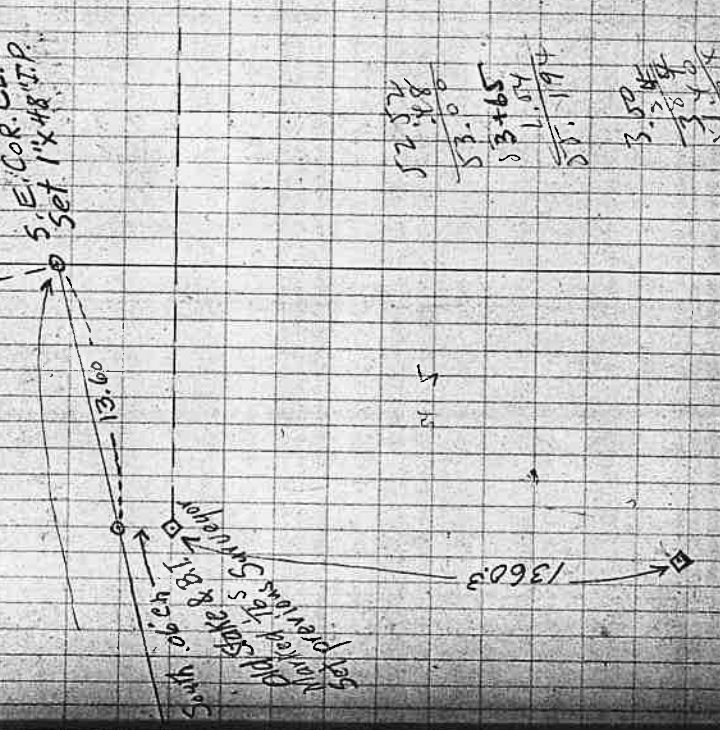 S.E. COR.
Set 1"x48" I.P.
13.60
South .06 ch
Old Stake & B.T.
Marked Tbs
Set previous Surveyor
1360.3
52.52
.48
53.00
53+65
1.54
55.194
3.50